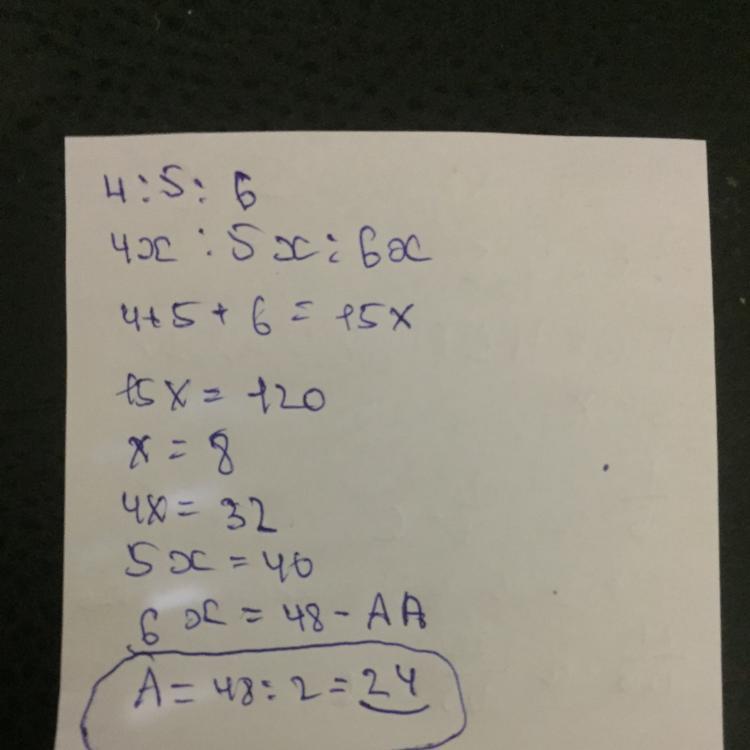 4:5:6
4x:5x:6x
4+5+6=15x
15x=120
x=8
4x=32
5x=40
6x=48-AA
A=48:2=24